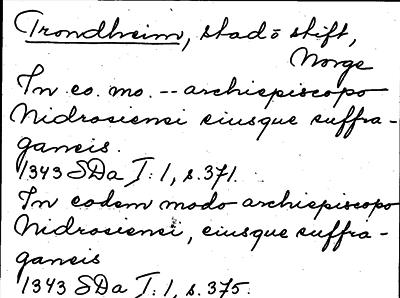 Trondheim, stad o stift,
Norge
In eo. mo. -- archiepiscopo
Nidrosiensi eiusque suffra-
ganeis.
1343 SDa I: 1, s. 371.
In eodem modo archiepiscopo
Nidrosiensi, eiusque suffra-
ganeis
1343 SDa I: 1, s. 375.